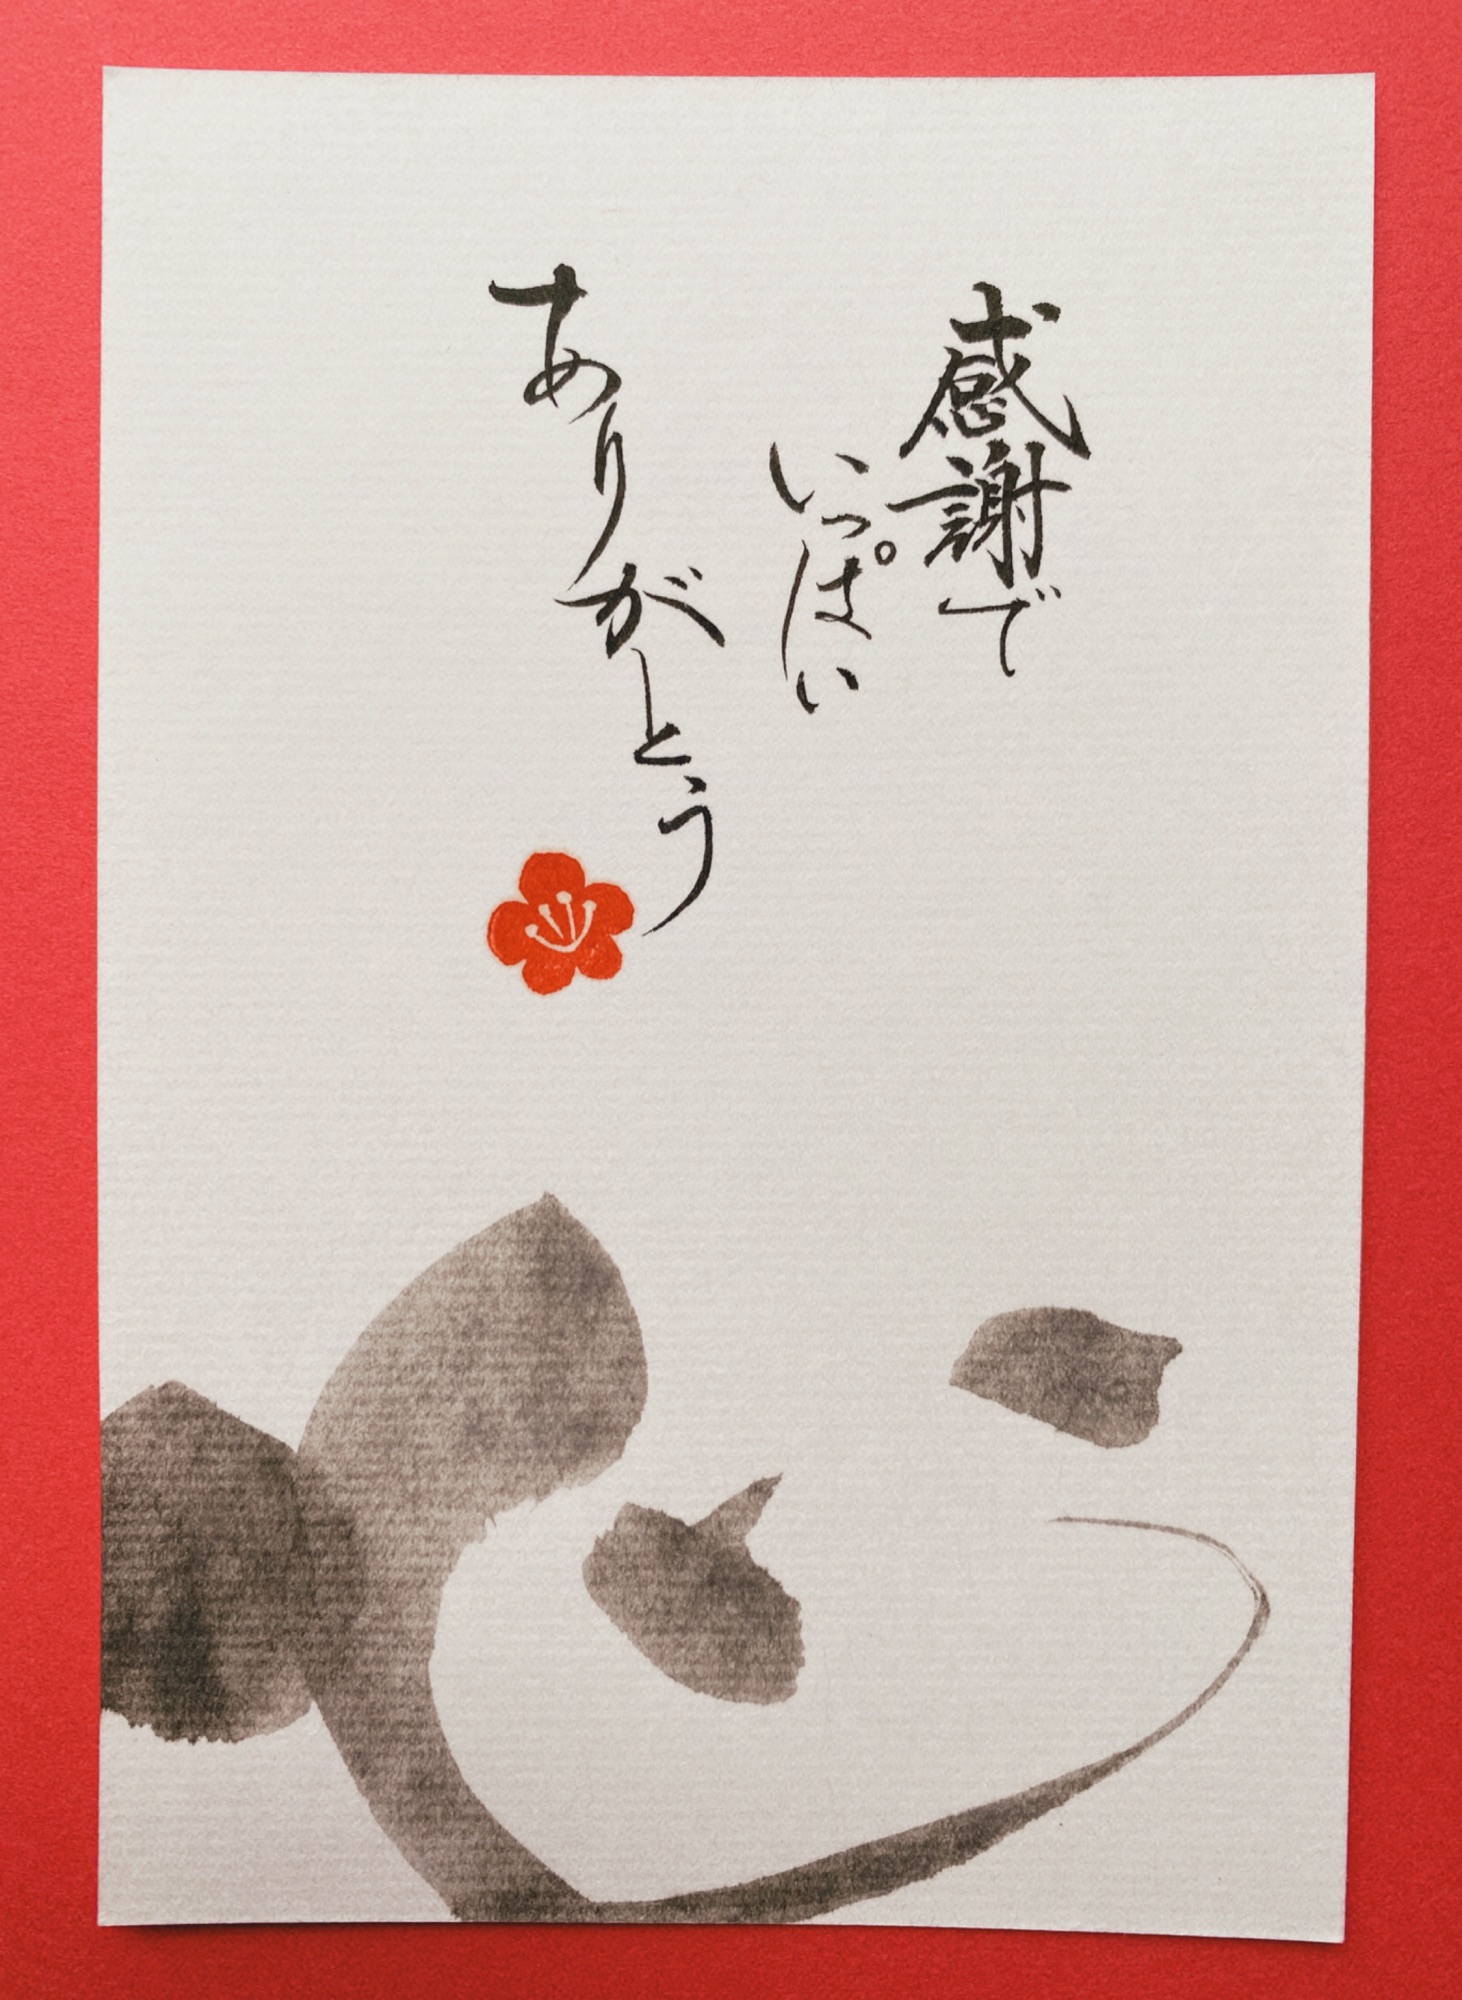 感謝で
いっぱい
ありがとう
心